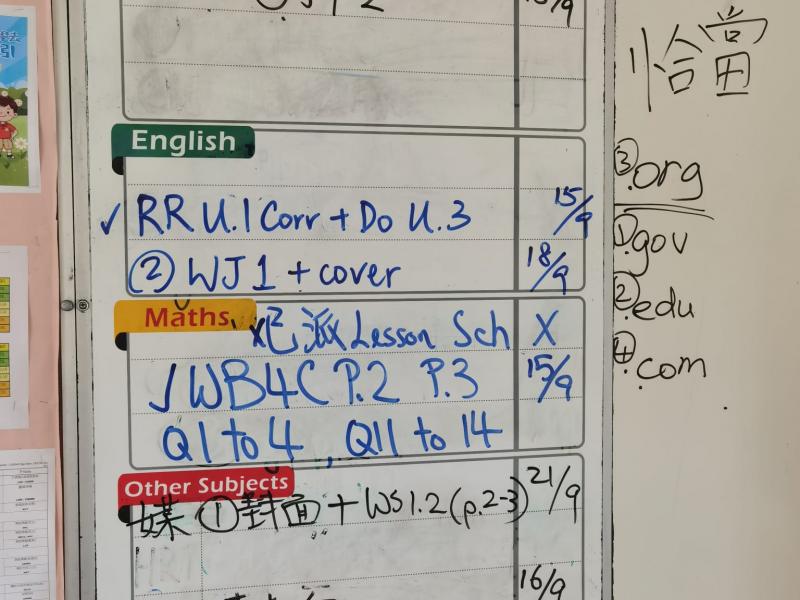 English
✓ RR U.1 Corr + Do U.3 15/9
② WJ1 + cover 18/9
Maths
派 Lesson Sch X
✓ WB4C P.2 P.3 15/9
Q1 to 4, Q11 to 14
Other Subjects
媒 ①封面 + WS1.2 (p.2-3) 21/9
16/9
恰當
③.org
①.gov
②.edu
④.com